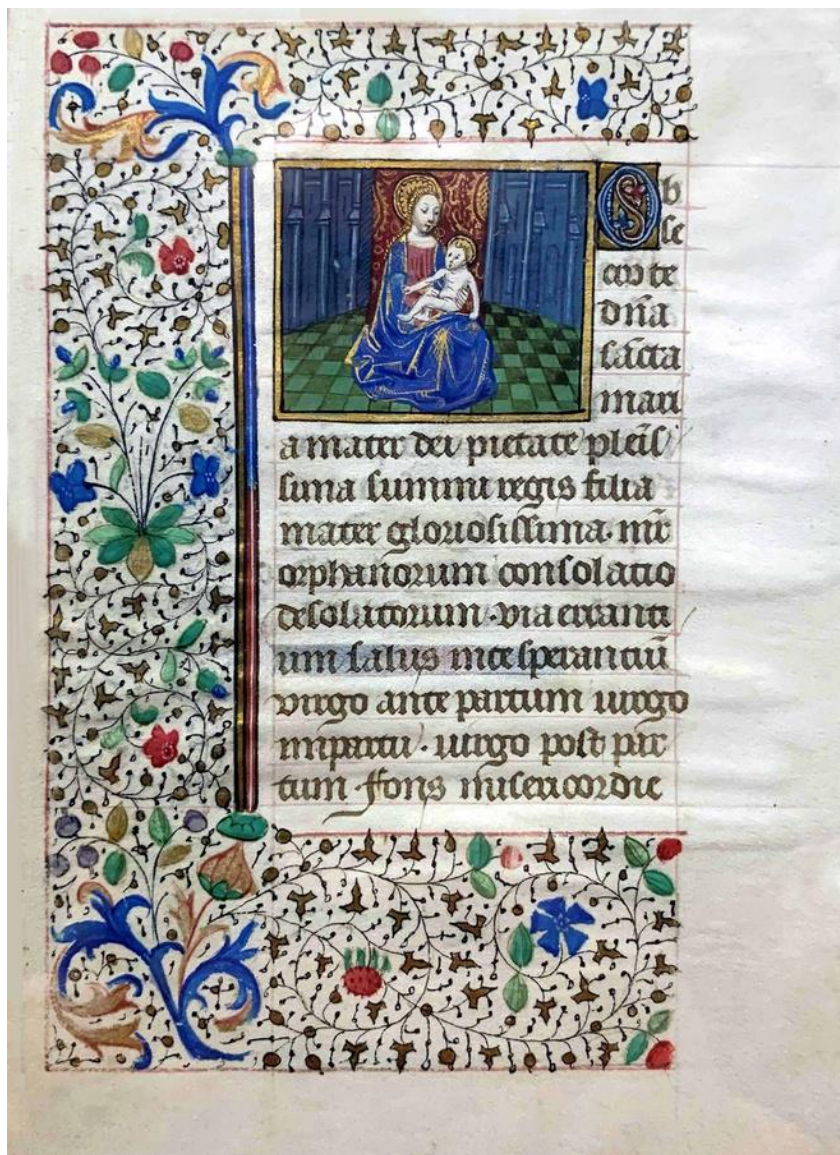 Ob
se
cro te
dña
sācta
mari
a mater dei pietate pleīs
sima summi regis filia
mater gloriosissima· mr̄
orphanorum consolatio
desolatorum · via erranti
um salus in te sperantiū
virgo ante partum uirgo
in partu · uirgo post par
tum fons misericordie